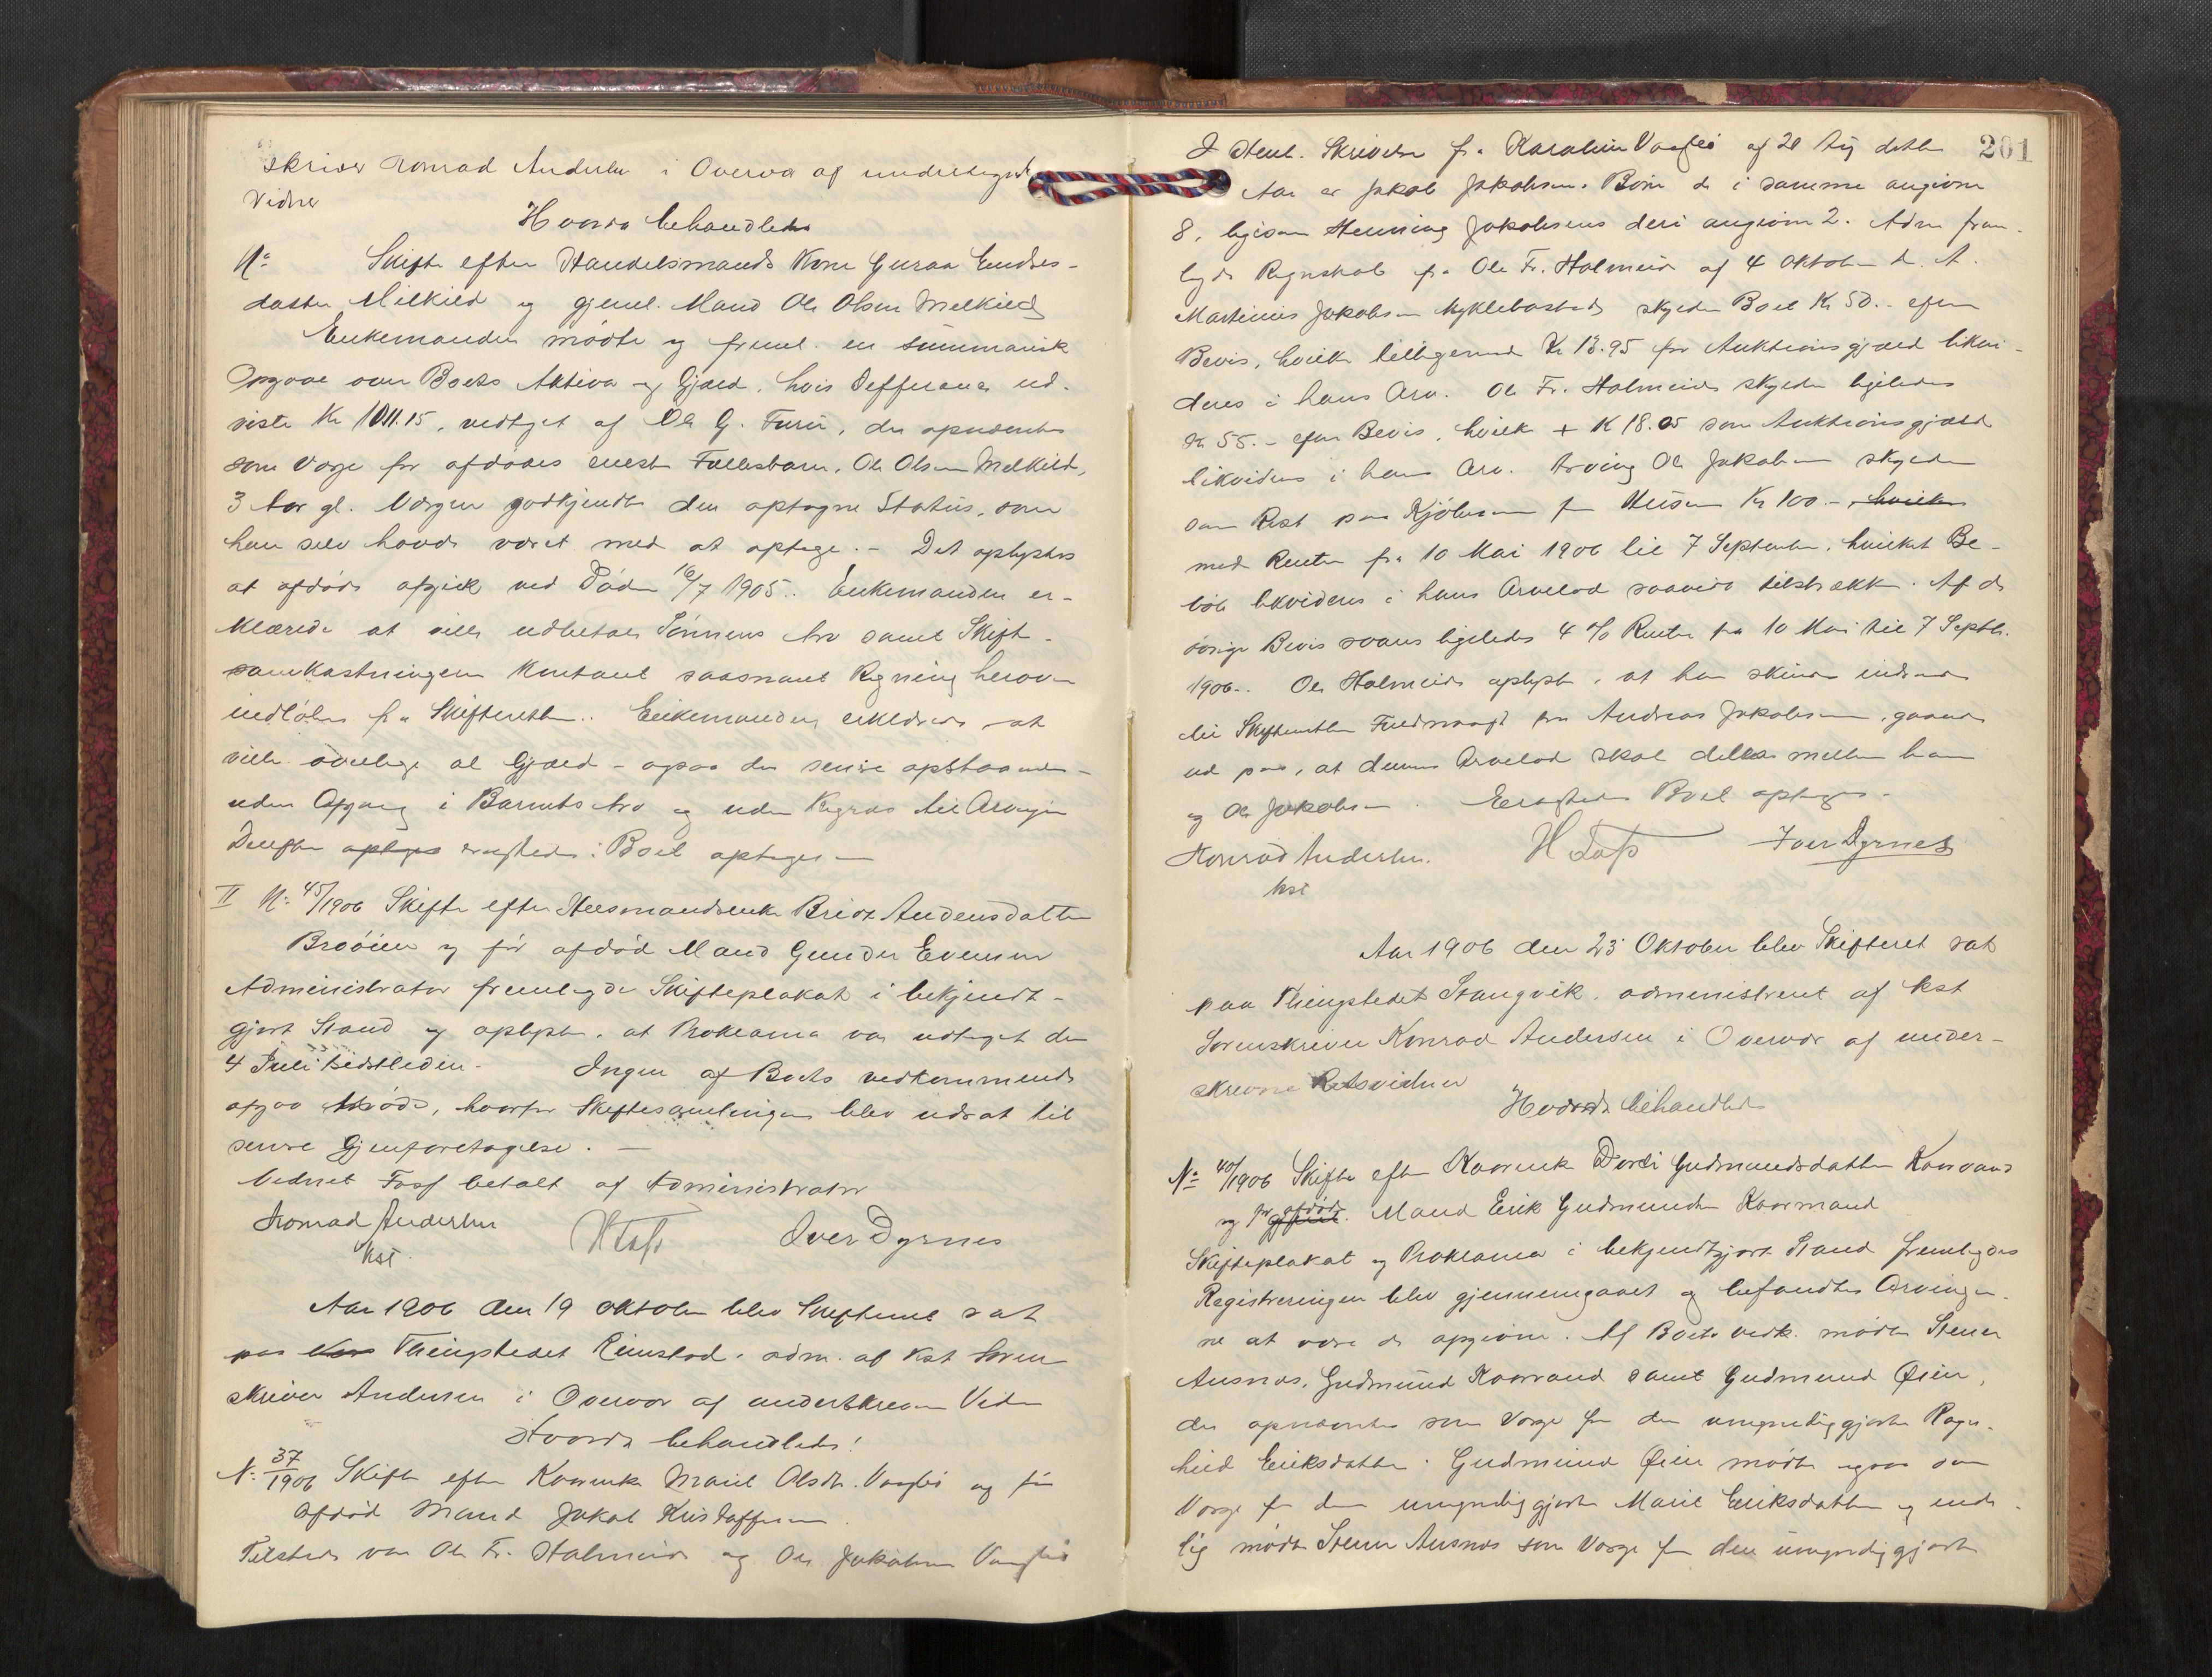 skriver Konrad Andersen i Overvær af undertegnede
Vidner
Hvorda behandledes
No Skifte efter Handelsmands Kone Guraa Endres-
datter Melkild og gjenl. Mand Ole Olsen Melkild
Enkemanden mødte og freml. en summarisk
Opgave over Boets Aktiva og Gjæld, hvis Defferance ud-
viste Kr 1011.15, vedtaget af Ole G. Furu, der opnævntes
som Værge for afdødes eneste Fællesbarn, Ole Olsen Melkild,
3 Aar gl. Værgen godkjendte den optagne Status, som
han selv havde været med at optage. - Det oplystes
at afdøde afgik ved Døden 16/7 1905. Enkemanden er-
klærede at ville udbetale Sønnens Arv samt Skifte-
omkostningerne kontant saasnart Regning herover
indløber fra Skifteretten. Enkemanden erklærede at
ville overtage al Gjæld - ogsaa den senere opstaaende -
uden Afgang i Barnets Arv og uden Regres til Arvingen
Derefter optages eragtedes: Boet optages
II No 45/1906 Skifte efter Husmandsenke Brit Andersdatter
Brøien og før afdød Mand Gunder Evensen
Administrator fremlagde Skifteplakat i bekjendt-
gjort Stand og oplyste, at Proklama var udtaget den
4 Juli sidstleden. Ingen af Boets vedkommende
afgav Møde, hvorfor Skiftesamlingen blev udsat til
senere Gjenforetagelse. -
Vidnet betalt af Administrator
Konrad Andersen H Tafs Iver Dyrnes
kst.
Aar 1906 den 19 Oktober blev Skifteret sat
paa Thingstedet Rimstad, adm. af kst Soren-
skriver Andersen i Overvær af underskrevne Vidner
Hvorda behandledes!
No. 37/1906 Skifte efter Kaarenke Marit Olsdr. Vaagbø og før
afdød Mand Jakob Kristoffersen.
Tilstede var Ole Fr. Halmeide og Ole Jakobsen Vaagbø
201
I Henl. Skrivelse fra Karoline Vaagbø af 20 Aug dette
Aar er Jakob Jakobsens Børn de i samme angivne
8, ligesom Henning Jakobsens deri angivne 2. Adm frem-
lagde Regnskab fra Ole Fr. Halmeide af 4 Oktober d. A.
Martinus Jakobsen Myklebostad skylder Boet Kr 50.- efter
Bevis, hvilke tilligemed Kr 13.95 for Auktionsgjæld likvi-
deres i hans Arv. Ole Fr. Halmeide skylder ligeledes
Kr 55.- efter Bevis, hvilke + K 18.05 som Auktionsgjæld
likvideres i hans Arv. Arving Ole Jakobsen skylder
som Rest paa Kjøbesum for Huser Kr 100.- , hvilke
med Renter fra 10 Mai 1906 til 7 September, hvilket Be-
løb likvideres i hans Arvelod saavidt tilstrækk. Af de
øvrige Bevis svares ligeledes 4 % Renter fra 10 Mai til 7 Septb.
1906. Ole Halmeide oplyste, at han skulde indsende
til Skifteretten Fuldmagt fra Andreas Jakobsen, gaaende
ud paa, at dennes Arvelod skal deles mellem ham
og Ole Jakobsen. Eragtedes Boet optages.
Konrad Andersen. H Tafs Iver Dyrnes
kst
Aar 1906 den 23 Oktober blev Skifteret sat
paa Thingstedet Stangvik, administreret af kst
Sorenskriver Konrad Andersen i Overvær af under-
skrevne Retsvidner
Hvorda behandledes
No 40/1906 Skifte efter Kaarenke Dordi Gudmundsdatter Kaarvand
og før afdøde Mand Erik Gudmundsen Kaarvand
Skifteplakat og Proklama i bekjendtgjort Stand fremlagdes
Registreringen blev gjennemgaaet og befandtes Arvinger-
ne at være de opgivne. Af Boets vedk. mødte Stener
Ausnes, Gudmund Kaarvand samt Gudmund Øien,
der opnævntes som Værge for den umyndiggjorte Ragn-
hild Eriksdatter. Gudmund Øien mødte ogsaa som
Værge for den umyndiggjorte Marit Eriksdatter og ende-
lig mødte Stener Ausnes som Værge for den umyndiggjorte